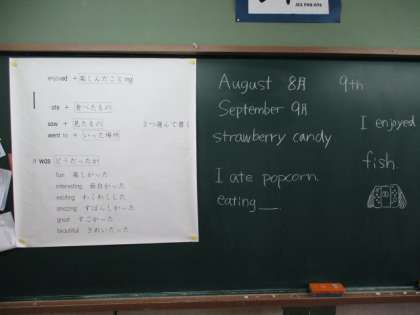 enjoyed + 楽しんだこと ing
ate + 食べたもの
saw + 見たもの
２つ選んで書く
went to + いった場所
It was どうだったか
fun 楽しかった
interesting 面白かった
exciting わくわくした
amazing すばらしかった
great すごかった
beautiful きれいだった
August 8月 9th
September 9月
strawberry candy
I ate popcorn.
eating
I enjoyed
fish.